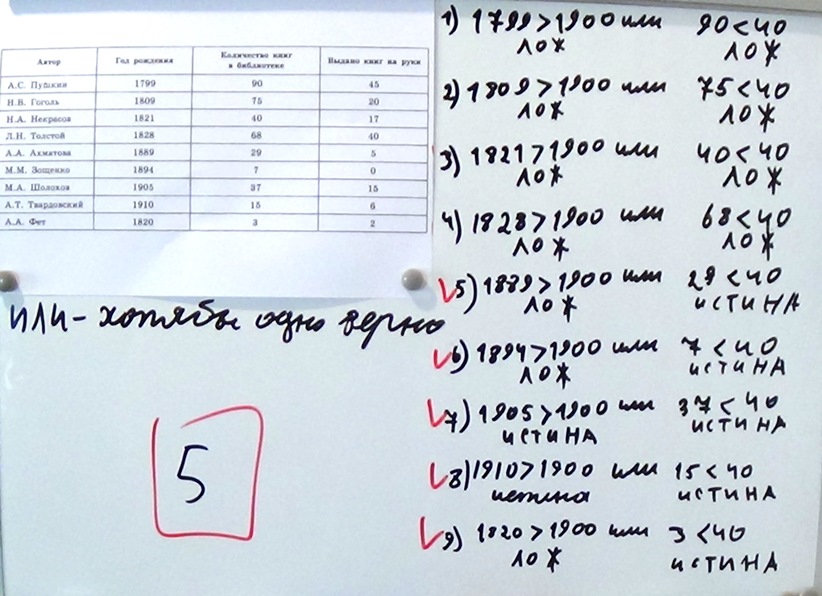 Автор Год рождения Количество книг в библиотеке Выдано книг на руки
А.С. Пушкин 1799 90 45
Н.В. Гоголь 1809 75 20
Н.А. Некрасов 1821 40 17
Л.Н. Толстой 1828 68 40
А.А. Ахматова 1889 29 5
М.М. Зощенко 1894 7 0
М.А. Шолохов 1905 37 15
А.Т. Твардовский 1910 15 6
А.А. Фет 1820 3 2
ИЛИ - хотябы одно верно
5
1) 1799 > 1900 или 90 < 40
ЛОЖ ЛОЖ
2) 1809 > 1900 или 75 < 40
ЛОЖ ЛОЖ
3) 1821 > 1900 или 40 < 40
ЛОЖ ЛОЖ
4) 1828 > 1900 или 68 < 40
ЛОЖ ЛОЖ
5) 1889 > 1900 или 29 < 40
ЛОЖ ИСТИНА
6) 1894 > 1900 или 7 < 40
ЛОЖ ИСТИНА
7) 1905 > 1900 или 37 < 40
ИСТИНА ИСТИНА
8) 1910 > 1900 или 15 < 40
истина ИСТИНА
9) 1820 > 1900 или 3 < 40
ЛОЖ ИСТИНА